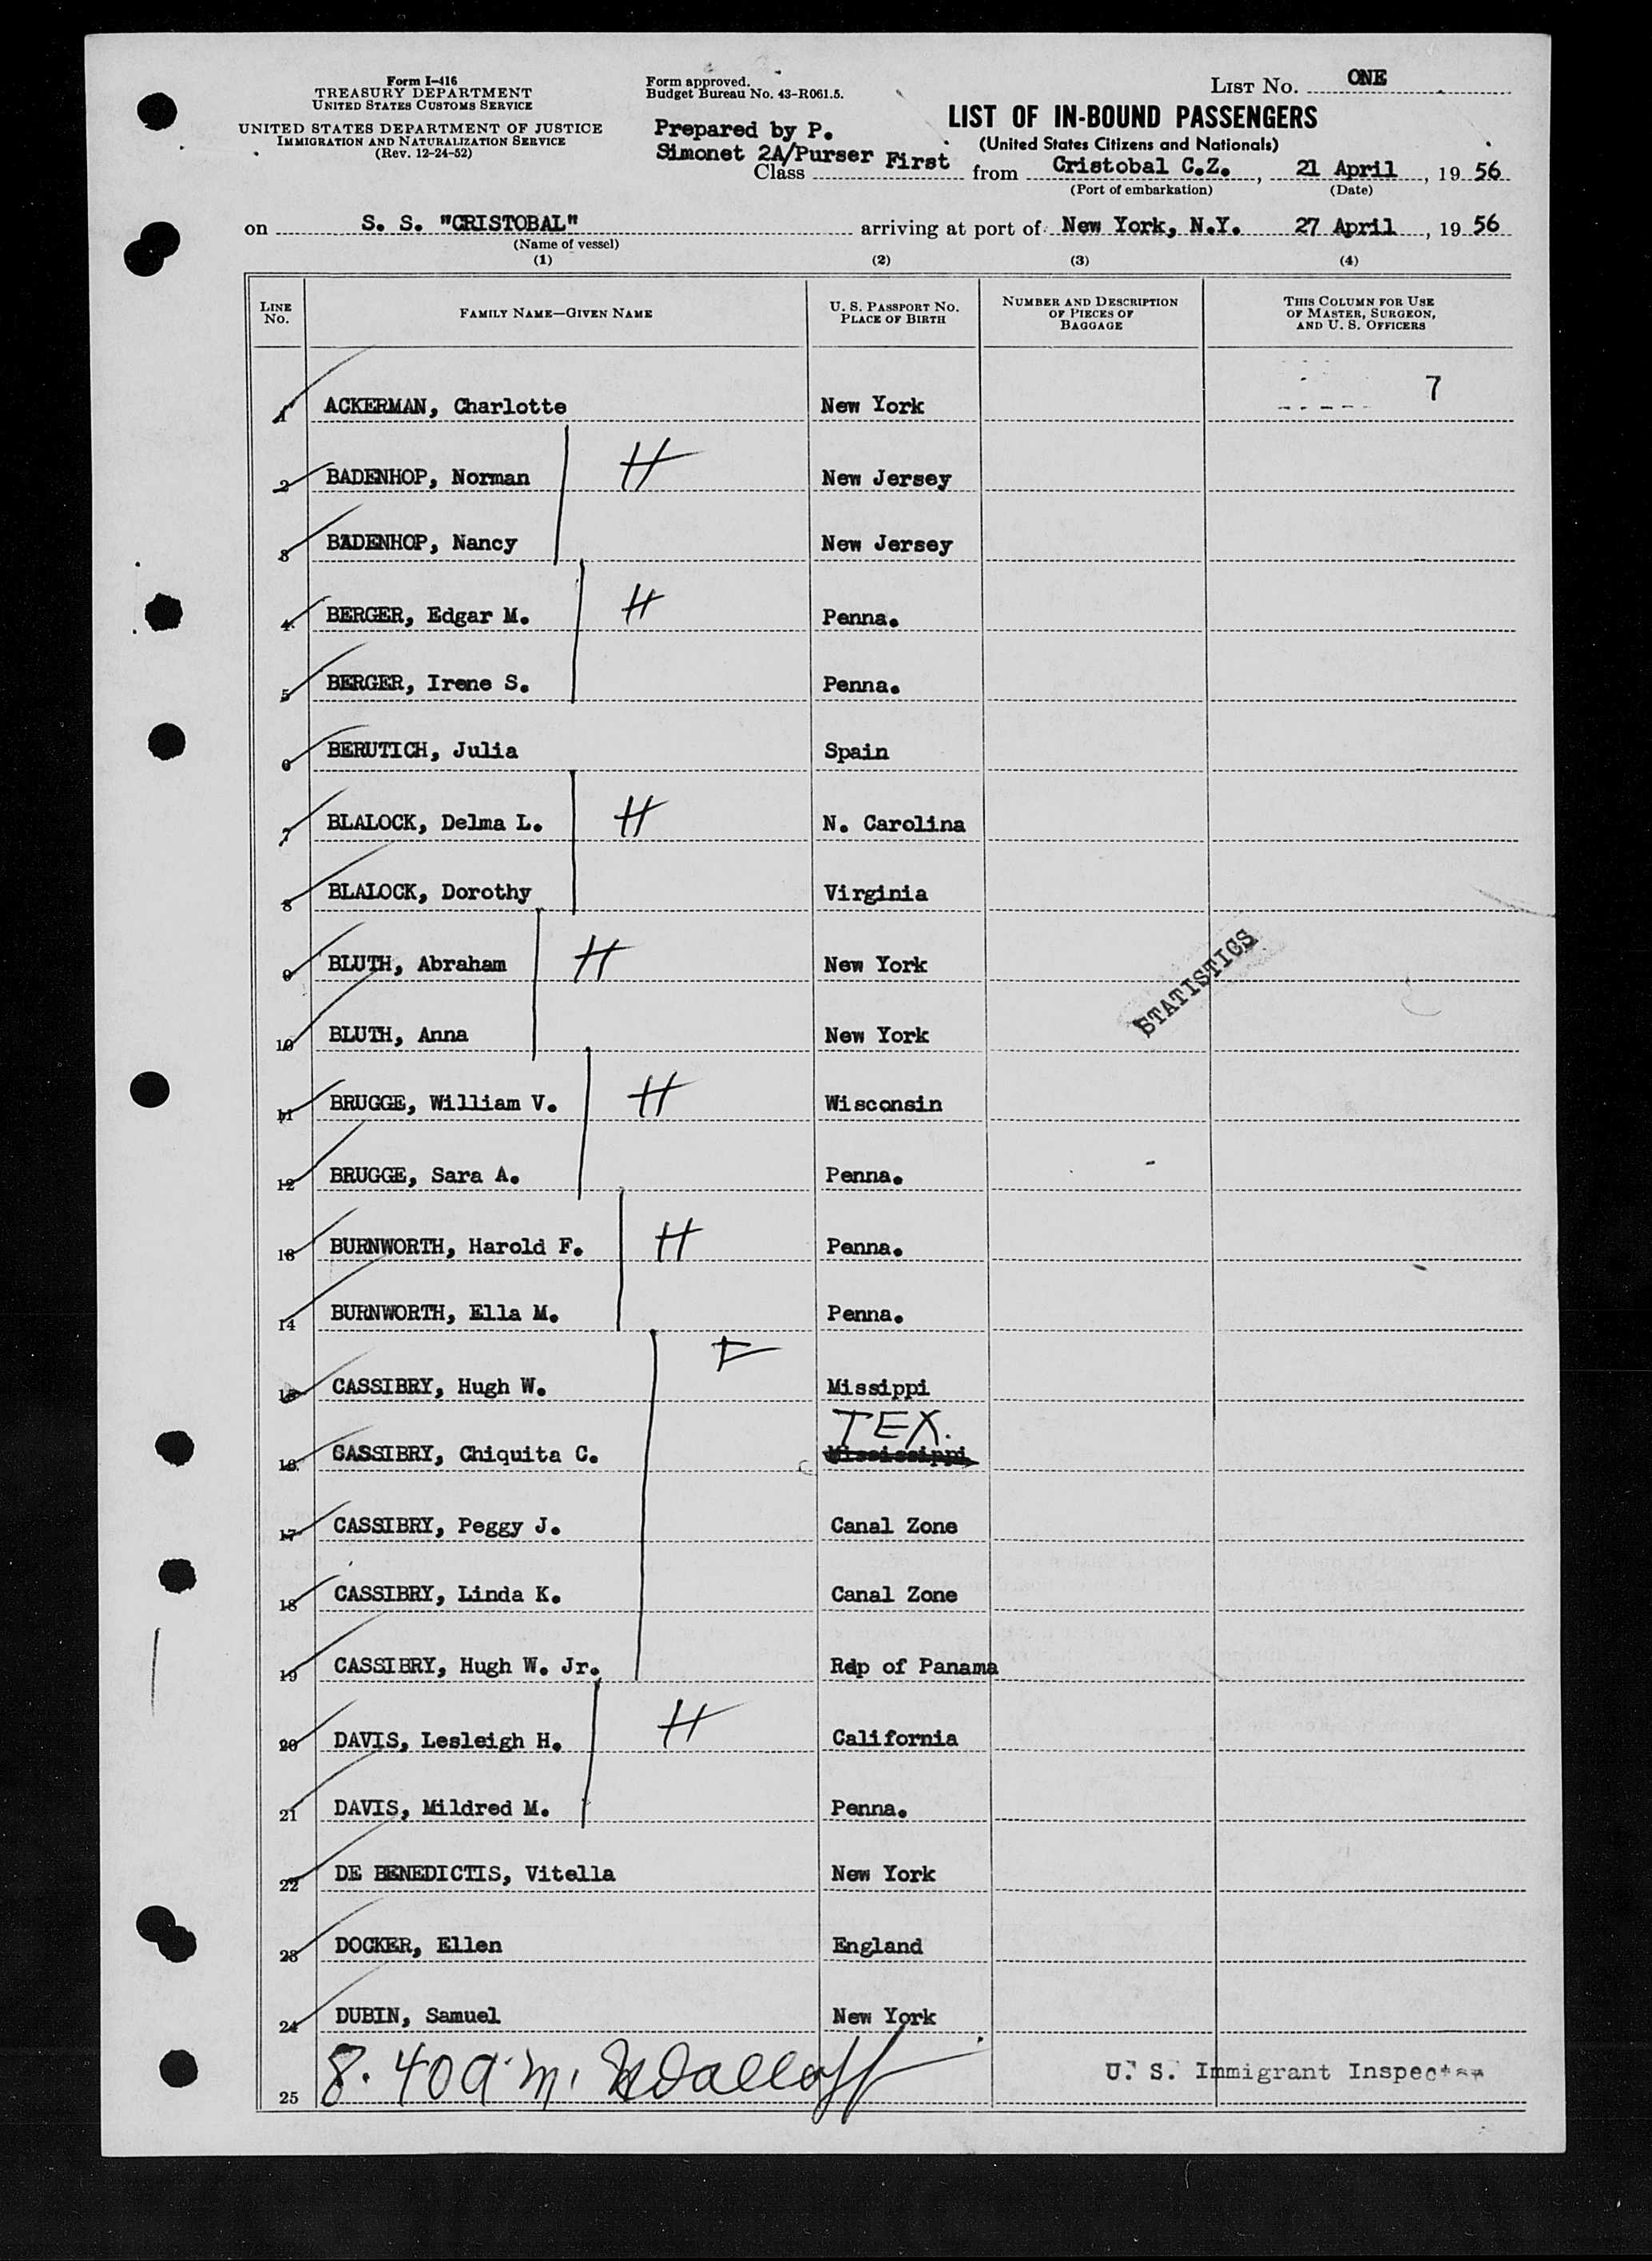 Form I-416
TREASURY DEPARTMENT
UNITED STATES CUSTOMS SERVICE
UNITED STATES DEPARTMENT OF JUSTICE
IMMIGRATION AND NATURALIZATION SERVICE
(Rev. 12-24-52)
Form approved.
Budget Bureau No. 43-R061.5.
LIST No. ONE
LIST OF IN-BOUND PASSENGERS
(United States Citizens and Nationals)
Prepared by P.
Simonet 2A/Purser
Class First from Cristobal C.Z., 21 April, 19 56
(Port of embarkation) (Date)
on S. S. "CRISTOBAL" arriving at port of New York, N.Y. 27 April, 19 56
(Name of vessel)
(1) (2) (3) (4)
LINE No. FAMILY NAME—GIVEN NAME U. S. PASSPORT No. PLACE OF BIRTH NUMBER AND DESCRIPTION OF PIECES OF BAGGAGE THIS COLUMN FOR USE OF MASTER, SURGEON, AND U. S. OFFICERS
1 ACKERMAN, Charlotte New York 7
2 BADENHOP, Norman H New Jersey
3 BADENHOP, Nancy New Jersey
4 BERGER, Edgar M. H Penna.
5 BERGER, Irene S. Penna.
6 BERUTICH, Julia Spain
7 BLALOCK, Delma L. H N. Carolina
8 BLALOCK, Dorothy Virginia
9 BLUTH, Abraham H New York
STATISTICS
10 BLUTH, Anna New York
11 BRUGGE, William V. H Wisconsin
12 BRUGGE, Sara A. Penna.
13 BURNWORTH, Harold F. H Penna.
14 BURNWORTH, Ella M. Penna.
15 CASSIBRY, Hugh W. Missippi
TEX.
16 CASSIBRY, Chiquita C. Mississippi
17 CASSIBRY, Peggy J. Canal Zone
18 CASSIBRY, Linda K. Canal Zone
19 CASSIBRY, Hugh W. Jr. Rep of Panama
20 DAVIS, Lesleigh H. H California
21 DAVIS, Mildred M. Penna.
22 DE BENEDICTIS, Vitella New York
23 DOCKER, Ellen England
24 DUBIN, Samuel New York
25 8.40 a.m. U. S. Immigrant Inspector